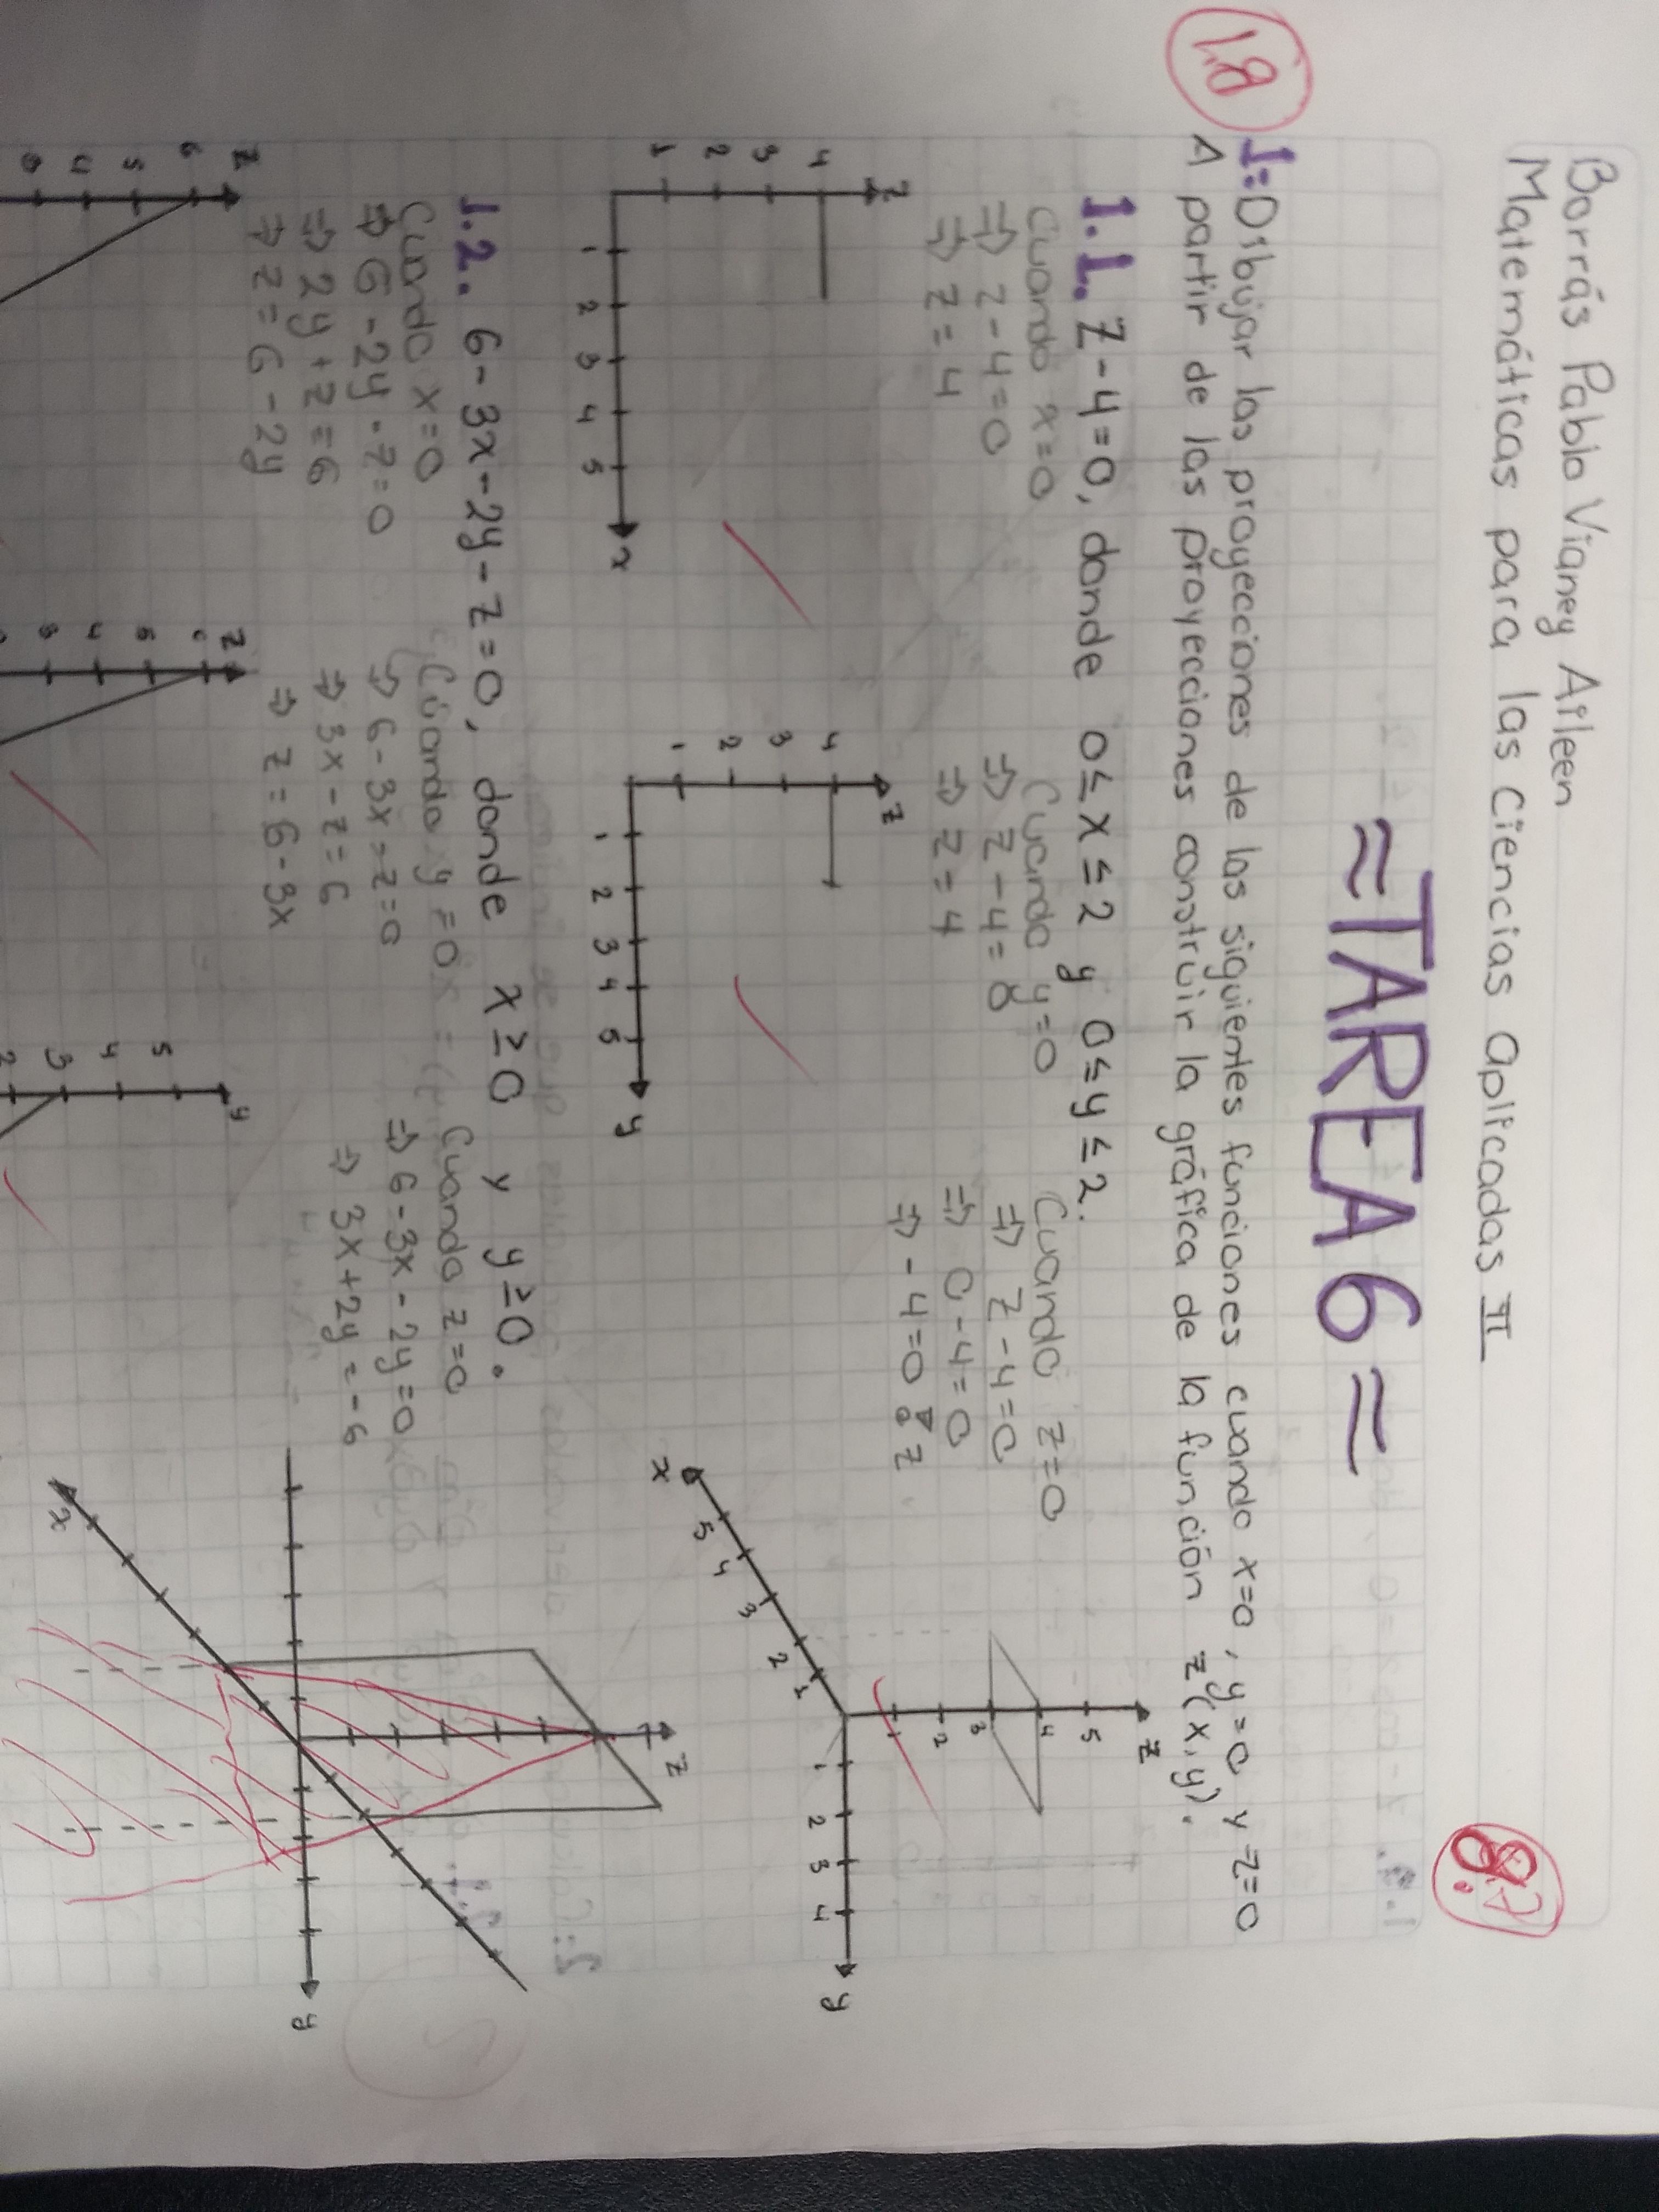 Borrás Pablo Vianey Aileen
Matemáticas para las Ciencias Aplicadas II
8.7
≈TAREA 6≈
1.8
1= Dibujar las proyecciones de las siguientes funciones cuando x=0, y=0 y z=0
A partir de las proyecciones construir la gráfica de la función z(x,y).
1.1. z-4=0, donde 0≤x≤2 y 0≤y≤2.
Cuando x=0
⇒ z-4=0
⇒ z=4
Cuando y=0
⇒ z-4=0
⇒ z=4
Cuando z=0
⇒ z-4=0
⇒ 0-4=0
⇒ -4=0 ! z
z
4
3
2
1
1 2 3 4 5
x
z
4
3
2
1
1 2 3 4 5
y
z
5
4
3
2
1
1 2 3 4
y
1
2
3
4
5
x
1.2. 6-3x-2y-z=0, donde x≥0 y y≥0.
Cuando x=0
⇒ 6-2y-z=0
⇒ 2y+z=6
⇒ z=6-2y
Cuando y=0
⇒ 6-3x-z=0
⇒ 3x-z=6
⇒ z=6-3x
Cuando z=0
⇒ 6-3x-2y=0
⇒ 3x+2y=-6
z
6
5
4
3
z
6
5
4
3
y
5
4
3
2
z
y
x